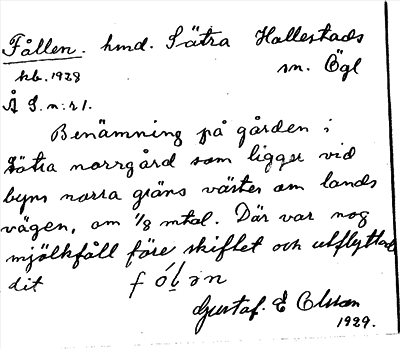 Fållen. hmd. Sätra Hällestads
kb. 1928 sn. Ögl
Å S. n:r 1.
Benämning på gården i
Sätra norrgård som ligger vid
byns norra gräns väster om lands
vägen, om 1/8 mtal. Där var nog
mjölkfåll före skiftet och utflyttad
dit
Gustaf. E Olsson
1929.